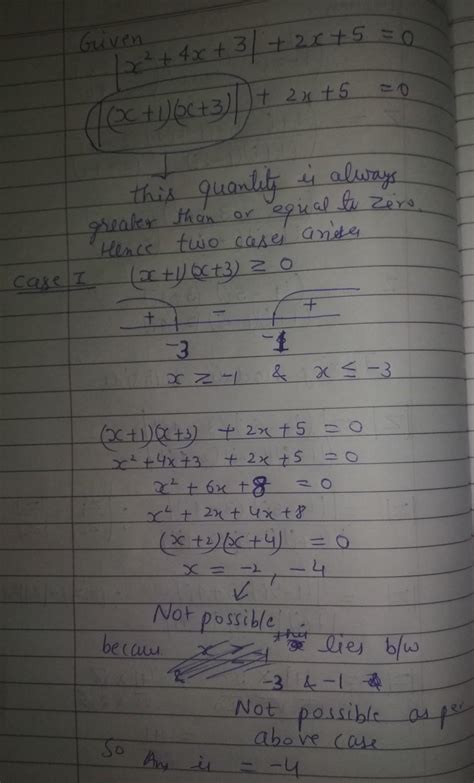 Given
|x² + 4x + 3| + 2x + 5 = 0
|(x+1)(x+3)| + 2x + 5 = 0
this quantity is always
greater than or equal to zero.
Hence two cases arises
Case I (x+1)(x+3) ≥ 0
+ - +
-3 -1
x ≥ -1 & x ≤ -3
(x+1)(x+3) + 2x + 5 = 0
x² + 4x + 3 + 2x + 5 = 0
x² + 6x + 8 = 0
x² + 2x + 4x + 8
(x+2)(x+4) = 0
x = -2, -4
Not possible
becaus this lies b/w
-3 & -1
Not possible as per
above case
So Ans is = -4